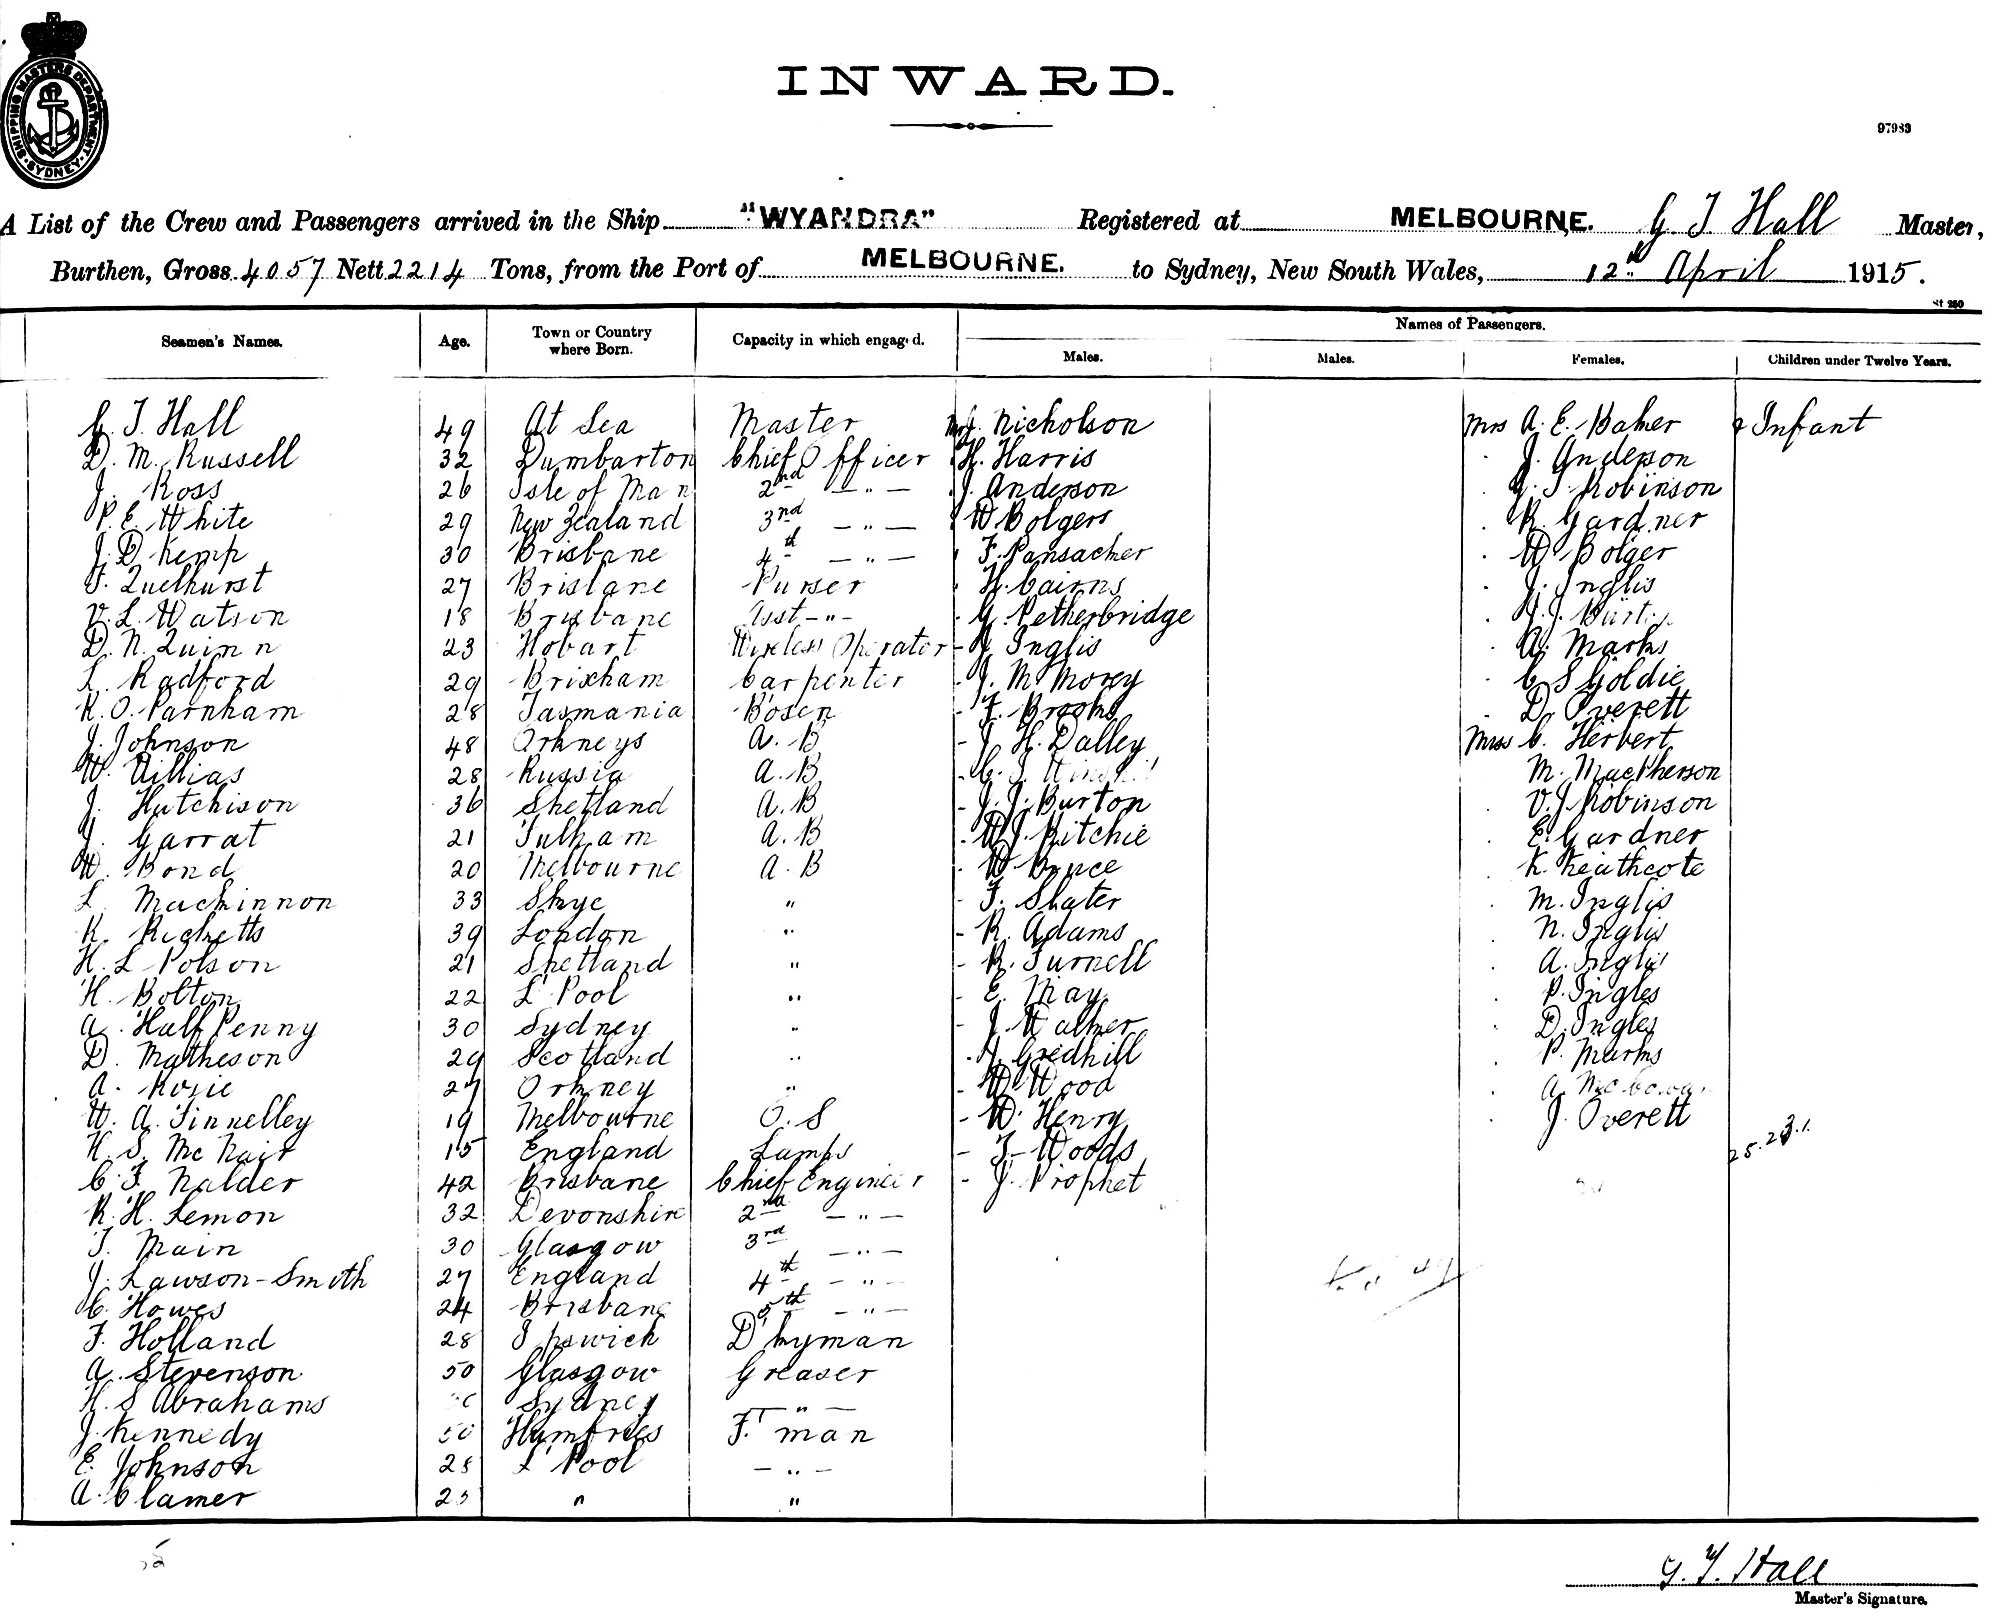 SHIPPING MASTERS DEPARTMENT. SYDNEY.
INWARD.
97983
A List of the Crew and Passengers arrived in the Ship "WYANDRA" Registered at MELBOURNE. G. T. Hall Master,
Burthen, Gross 4057 Nett 2214 Tons, from the Port of MELBOURNE. to Sydney, New South Wales, 12th April 1915.
Seamen's Names. Age. Town or Country where Born. Capacity in which engaged. Names of Passengers.
Males. Males. Females. Children under Twelve Years.
G. T. Hall 49 At Sea Master J. Nicholson Mrs A. E. Baker Infant
D. M. Russell 32 Dumbarton Chief Officer H. Harris J. Anderson
J. Ross 26 Isle of Man 2nd — " — J. Anderson J. Robinson
P. E. White 29 New Zealand 3rd — " — W Bolgers R. Gardner
J. D. Kemp 30 Brisbane 4th — " — F. Pansacher W Bolger
F. Quelhurst 27 Brisbane Purser H. Cairns J. Inglis
V. L. Watson 18 Brisbane Asst — " — G. Petherbridge
D. N. Quinn 23 Hobart Wireless Operator Inglis A. Marks
L. Radford 29 Brixham Carpenter J. M. Morey C S Goldie
R. O. Parnham 28 Tasmania Bosen F. Brooks D. Overett
J. Johnson 48 Orkneys A. B J. H. Dalley Miss C. Herbert
W. Uillias 28 Russia A. B. M. MacPherson
J. Hutchison 36 Shetland A. B J. J. Burton V. J Robinson
J. Garrat 21 Fulham A. B W J. Ritchie E. Gardner
W. Bond 20 Melbourne A. B W Bruce K. Keathcote
L. Mackinnon 33 Skye " F. Slater M. Inglis
R. Ricketts 39 London " R. Adams N. Inglis
H. L Polson 21 Shetland " R. Turnell A. Inglis
H. Bolton 22 L'Pool " E. May P. Ingles
A. HalfPenny 30 Sydney " J. Walker D. Ingles
D. Matheson 29 Scotland " J. Gredhill P. Marks
A. Rosie 27 Orkney " W Wood
W. A. Finnelley 19 Melbourne O. S W. Henry J. Overett
H. S. McNair 15 England Lamps F. Woods
C. F. Nalder 42 Brisbane Chief Engineer J. Prophet
R. H. Lemon 32 Devonshire 2nd — " —
T. Main 30 Glasgow 3rd — " —
J. Lawson-Smith 27 England 4th — " —
C. Howes 24 Brisbane 5th — " —
F. Holland 28 Ipswich D'kyman
A. Stevenson 50 Glasgow Greaser
H. S Abrahams Sydney — " —
J. Kennedy 50 Humfries F. man
E. Johnson 28 L'Pool — " —
A. Clamer 25 " "
G. T. Hall
Master's Signature.